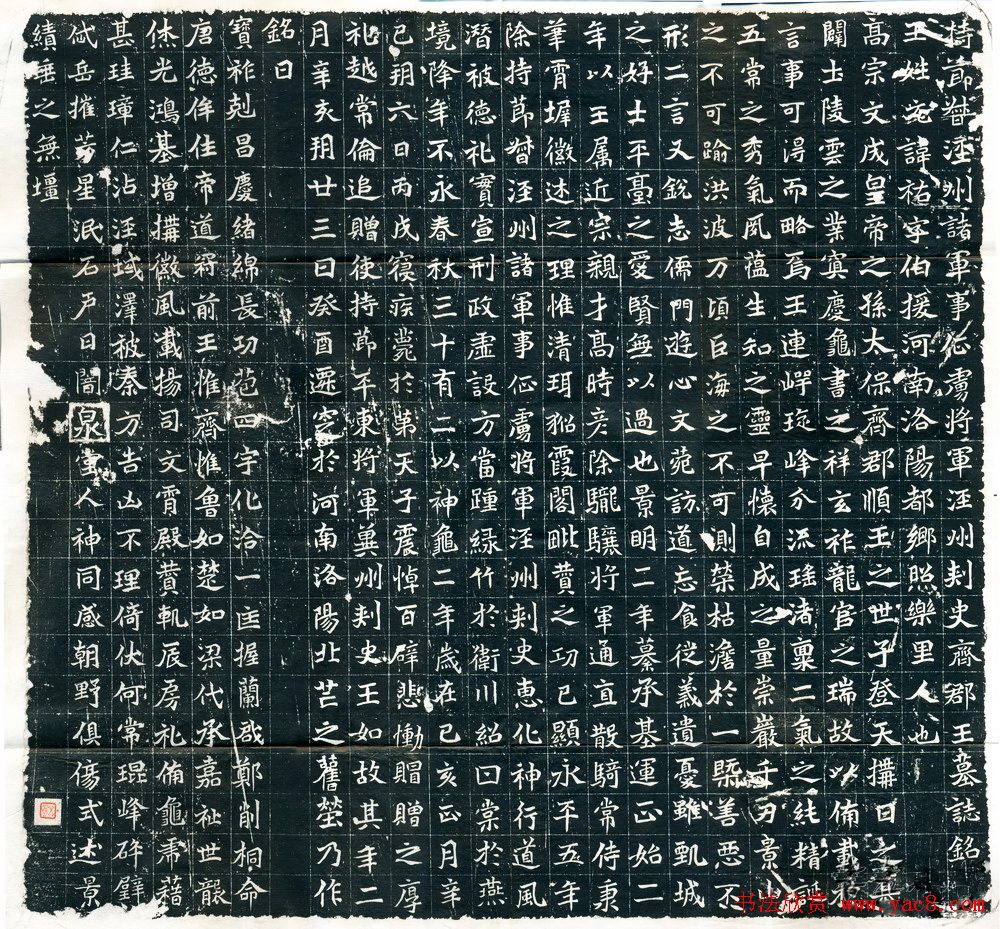 持節督涇州諸軍事征虜將軍涇州刾史齊郡王墓誌銘
王姓元諱祐字伯援河南洛陽都鄉照樂里人也
高宗文成皇帝之孫太保齊郡順王之世子登天搆日之
闢士陵雲之業寘慶龜書之祥玄祚龍官之瑞故以備載
言事可得而略焉王連崿琁峰分流瑤渚稟二氣之純精
五常之秀氣夙蘊生知之靈早懷自成之量崇巖千刃景山
之不可踰洪波万頃巨海之不可測榮枯澹於一槩善惡不
形二言又銳志儒門遊心文苑訪道忘食從義遺憂雖甄城
之好士平臺之愛賢無以過也景明二年纂承基運正始二
年以王属近宗親才高時彥除驪驤將軍通直散騎常侍秉
華霄墀徽述之理惟清珥貂霞閣毗賛之功已顯永平五年
除持節督涇州諸軍事征虜將軍涇州刾史惠化神行道風
潛被德礼實宣刑政虛設方當踵緑竹於衛川紹甘棠於燕
境降年不永春秋三十有二以神龜二年歲在己亥正月辛
巳朔六日丙戌寑疾薨於第天子震悼百辟悲慟賵贈之厚
礼越常倫追贈使持節平東將軍冀州刾史王如故其年二
月辛亥朔廿三日癸酉遷窆於河南洛陽北芒之舊塋乃作
銘曰
寶祚剋昌慶緒綿長功苞四宇化洽一匡握蘭戡鄭削桐命
唐德侔仕帝道窮前王惟齊惟魯如楚如梁代承嘉祉世襲
休光鴻基增搆徽風載揚司文霄殿賛軌扆房礼俻龜黼藉
甚珪璋仁沾涇域澤被秦方吉凶不理倚伏何常琨峰碎璧
岱岳摧芳星泯石戶日闇泉堂人神同感朝野俱傷式述景
績垂之無壃
书法欣赏 www.yac8.com